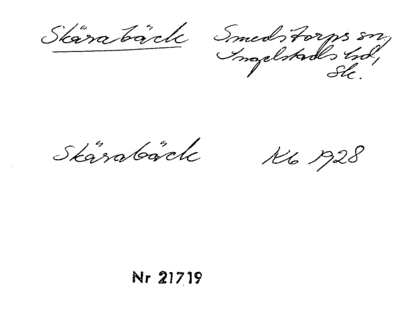 Skärabäck Smedstorps sn,
Ingelstads hd,
Sk.
Skärabäck Kb 1928
Nr 21719